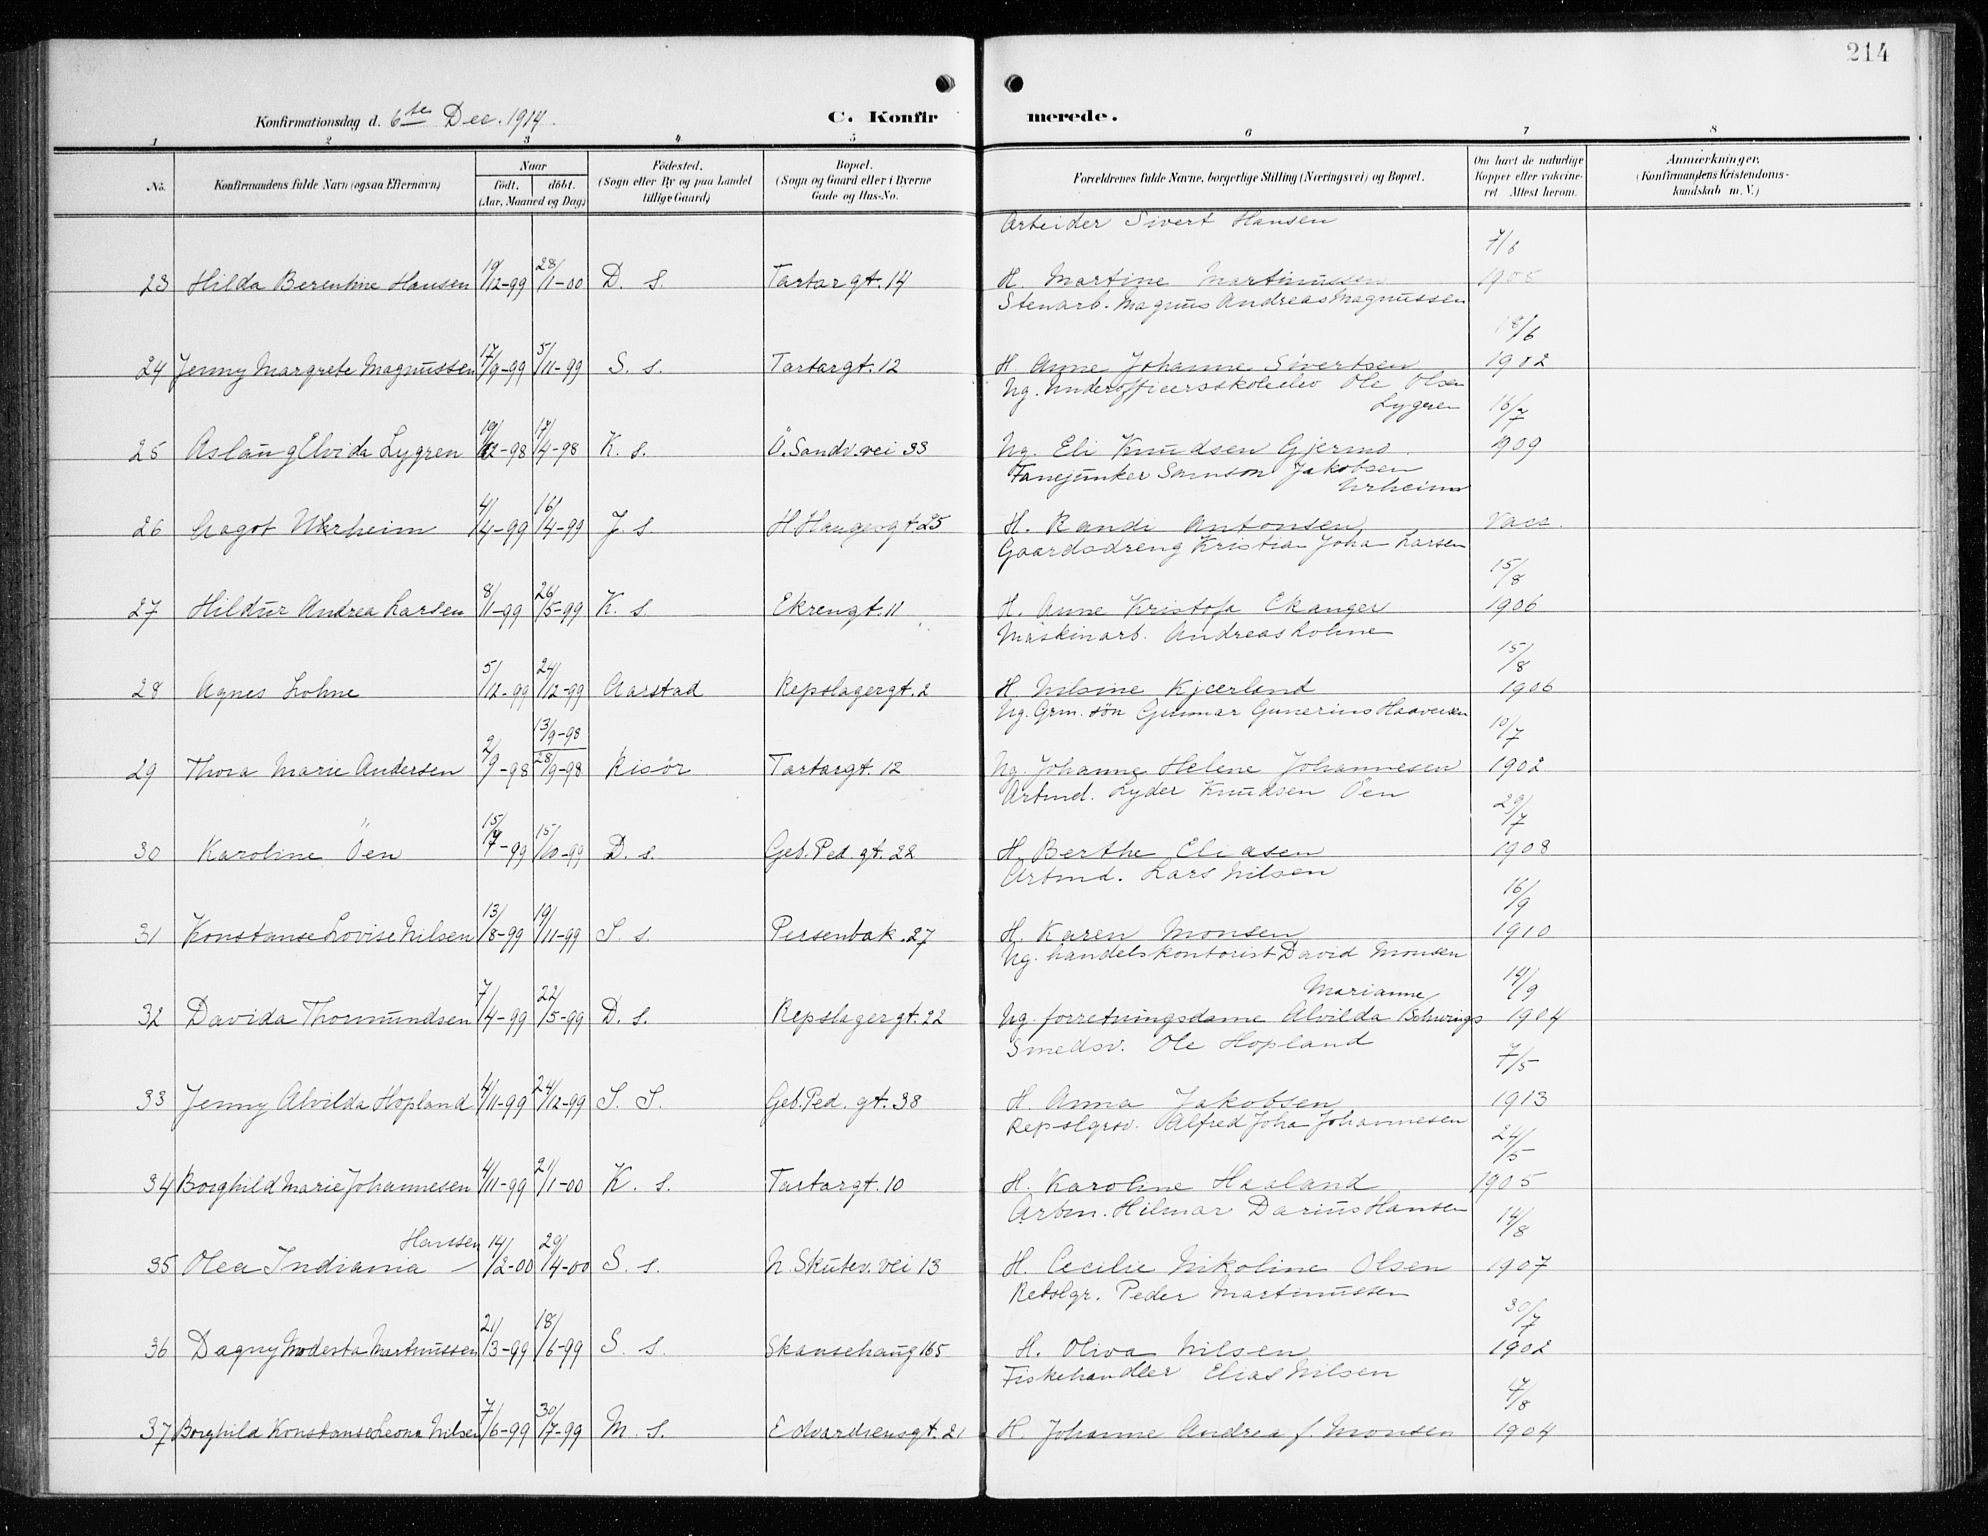 214
Konfirmationsdag d. 6te Dec. 1914.
C. Konfir
merede.
1 2 3 4 5 6 7 8
No. Konfirmandens fulde Navn (ogsaa Efternavn) Naar födt. döbt. (Aar, Maaned og Dag) Födested. (Sogn eller By og paa Landet tillige Gaard) Bopæl. (Sogn og Gaard eller i Byerne Gade og Hus-No. Forældrenes fulde Navne, borgerlige Stilling (Næringsvei) og Bopæl. Om havt de naturlige Kopper eller vakcineret Attest herom. Anmærkninger. (Konfirmandens Kristendomskundskab m. V.)
Arbeider Sivert Hansen
23 Hilda Berentine Hansen 19/12-99 28/1-00 D. s. Tartargt. 14 H. Martine Martinussen 7/6 1905
Stenarb. Magnus Andreas Magnussen
24 Jenny Margrete Magnussen 17/9-99 5/11-99 S. s. Tartargt. 12 H. Anne Johanne Sivertsen 18/6 1902
Ug. Underofficersskoleelev Ole Olsen Lygren
25 Aslaug Elvida Lygren 19/12-98 17/4-98 K. s. Ö. Sandv. vei 33 Ug. Eli Knudsen Gjermo. 16/7 1909
Fanejunker Samson Jakobsen Urheim
26 Aagot Urheim 4/4-99 16/4-99 J. s. H. Haugesgt. 25 H. Randi Antonsen Vacc.
Gaardsdreng Kristian Joha Larsen
27 Hildur Andrea Larsen 8/11-99 26/5-99 K. s. Ekrengt. 11 H. Anne Kristofa Ekanger 15/8 1906
Maskinarb. Andreas Lohne
28 Agnes Lohne 5/12-99 24/12-99 Aarstad Repslagergt. 2 H. Nilsine Kjærland 15/8 1906
Ug. Grm. sön Gunnar Gunerius Haaversen
29 Thora Marie Andersen 2/9-98 13/9-98 28/9-98 Risör Tartargt. 12 Ug. Johanne Helene Johannesen 10/7 1902
Arbmd. Lyder Knudsen Öen
30 Karoline Öen 15/7-99 15/10-99 D. s. Geb. Ped. gt. 22 H. Berthe Eliasen 29/7 1908
Arbmd. Lars Nilsen
31 Konstanse Lovise Nilsen 13/8-99 19/11-99 S. s. Persenbak. 27 H. Karen Monsen 16/9 1910
Ug. handelskontorist David Monsen
32 Davida Thormundsen 7/4-99 22/5-99 D. s. Repslagergt. 22 Ug. forretningsdame Alvilda Marianne 14/9 1904
Smedsv. Ole Hopland
33 Jenny Alvilda Hopland 4/11-99 24/12-99 S. S. Geb. Ped. gt. 38 H. Anna Jakobsen 7/5 1913
Repslgrsv. Alfred Joha Johannesen
34 Borghild Marie Johannesen 4/11-99 21/1-00 K. s. Tartargt. 10 H. Karoline Haaland 24/5 1905
Arbm. Hilmar Darius Hansen
35 Olea Indiania Hansen 14/2-00 29/4-00 S. s. N. Skutev. vei 13 H. Cecilie Nikoline Olsen 14/8 1907
Rebslgr. Peder Martinussen
36 Dagny Modesta Martinussen 21/3-99 18/6-99 S. s. Skansehaug 165 H. Oliva Nilsen 30/7 1902
Fiskehandler Elias Nilsen
37 Borghild Konstanse Leona Nilsen 7/6-99 30/7-99 M. s. Edvardsensgt. 21 H. Johanne Andrea f. Monsen 17/8 1904